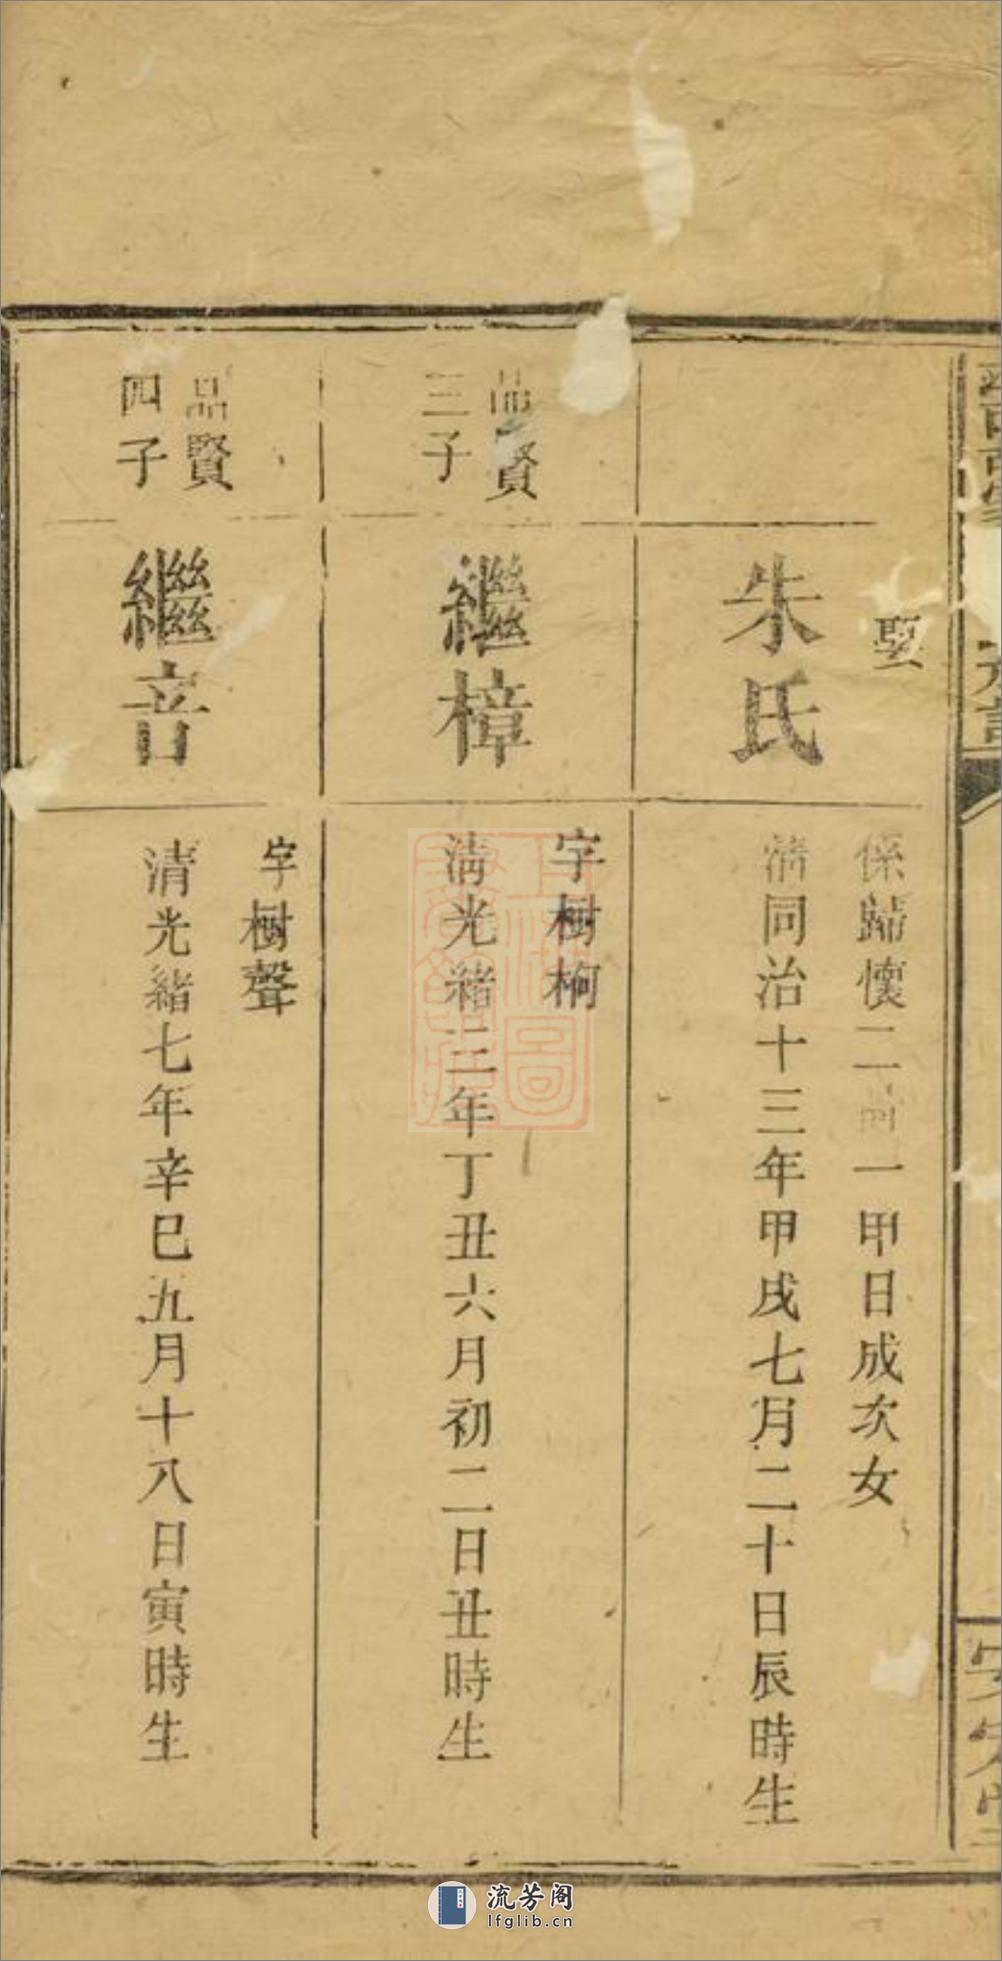 娶
朱氏
係歸懷二啚一甲日成次女
清同治十三年甲戌七月二十日辰時生
品賢
三子
繼樟
字樹枸
清光緒三年丁丑六月初二日丑時生
品賢
四子
繼音
字樹聲
清光緒七年辛巳五月十八日寅時生
流芳阁
lfglib.cn